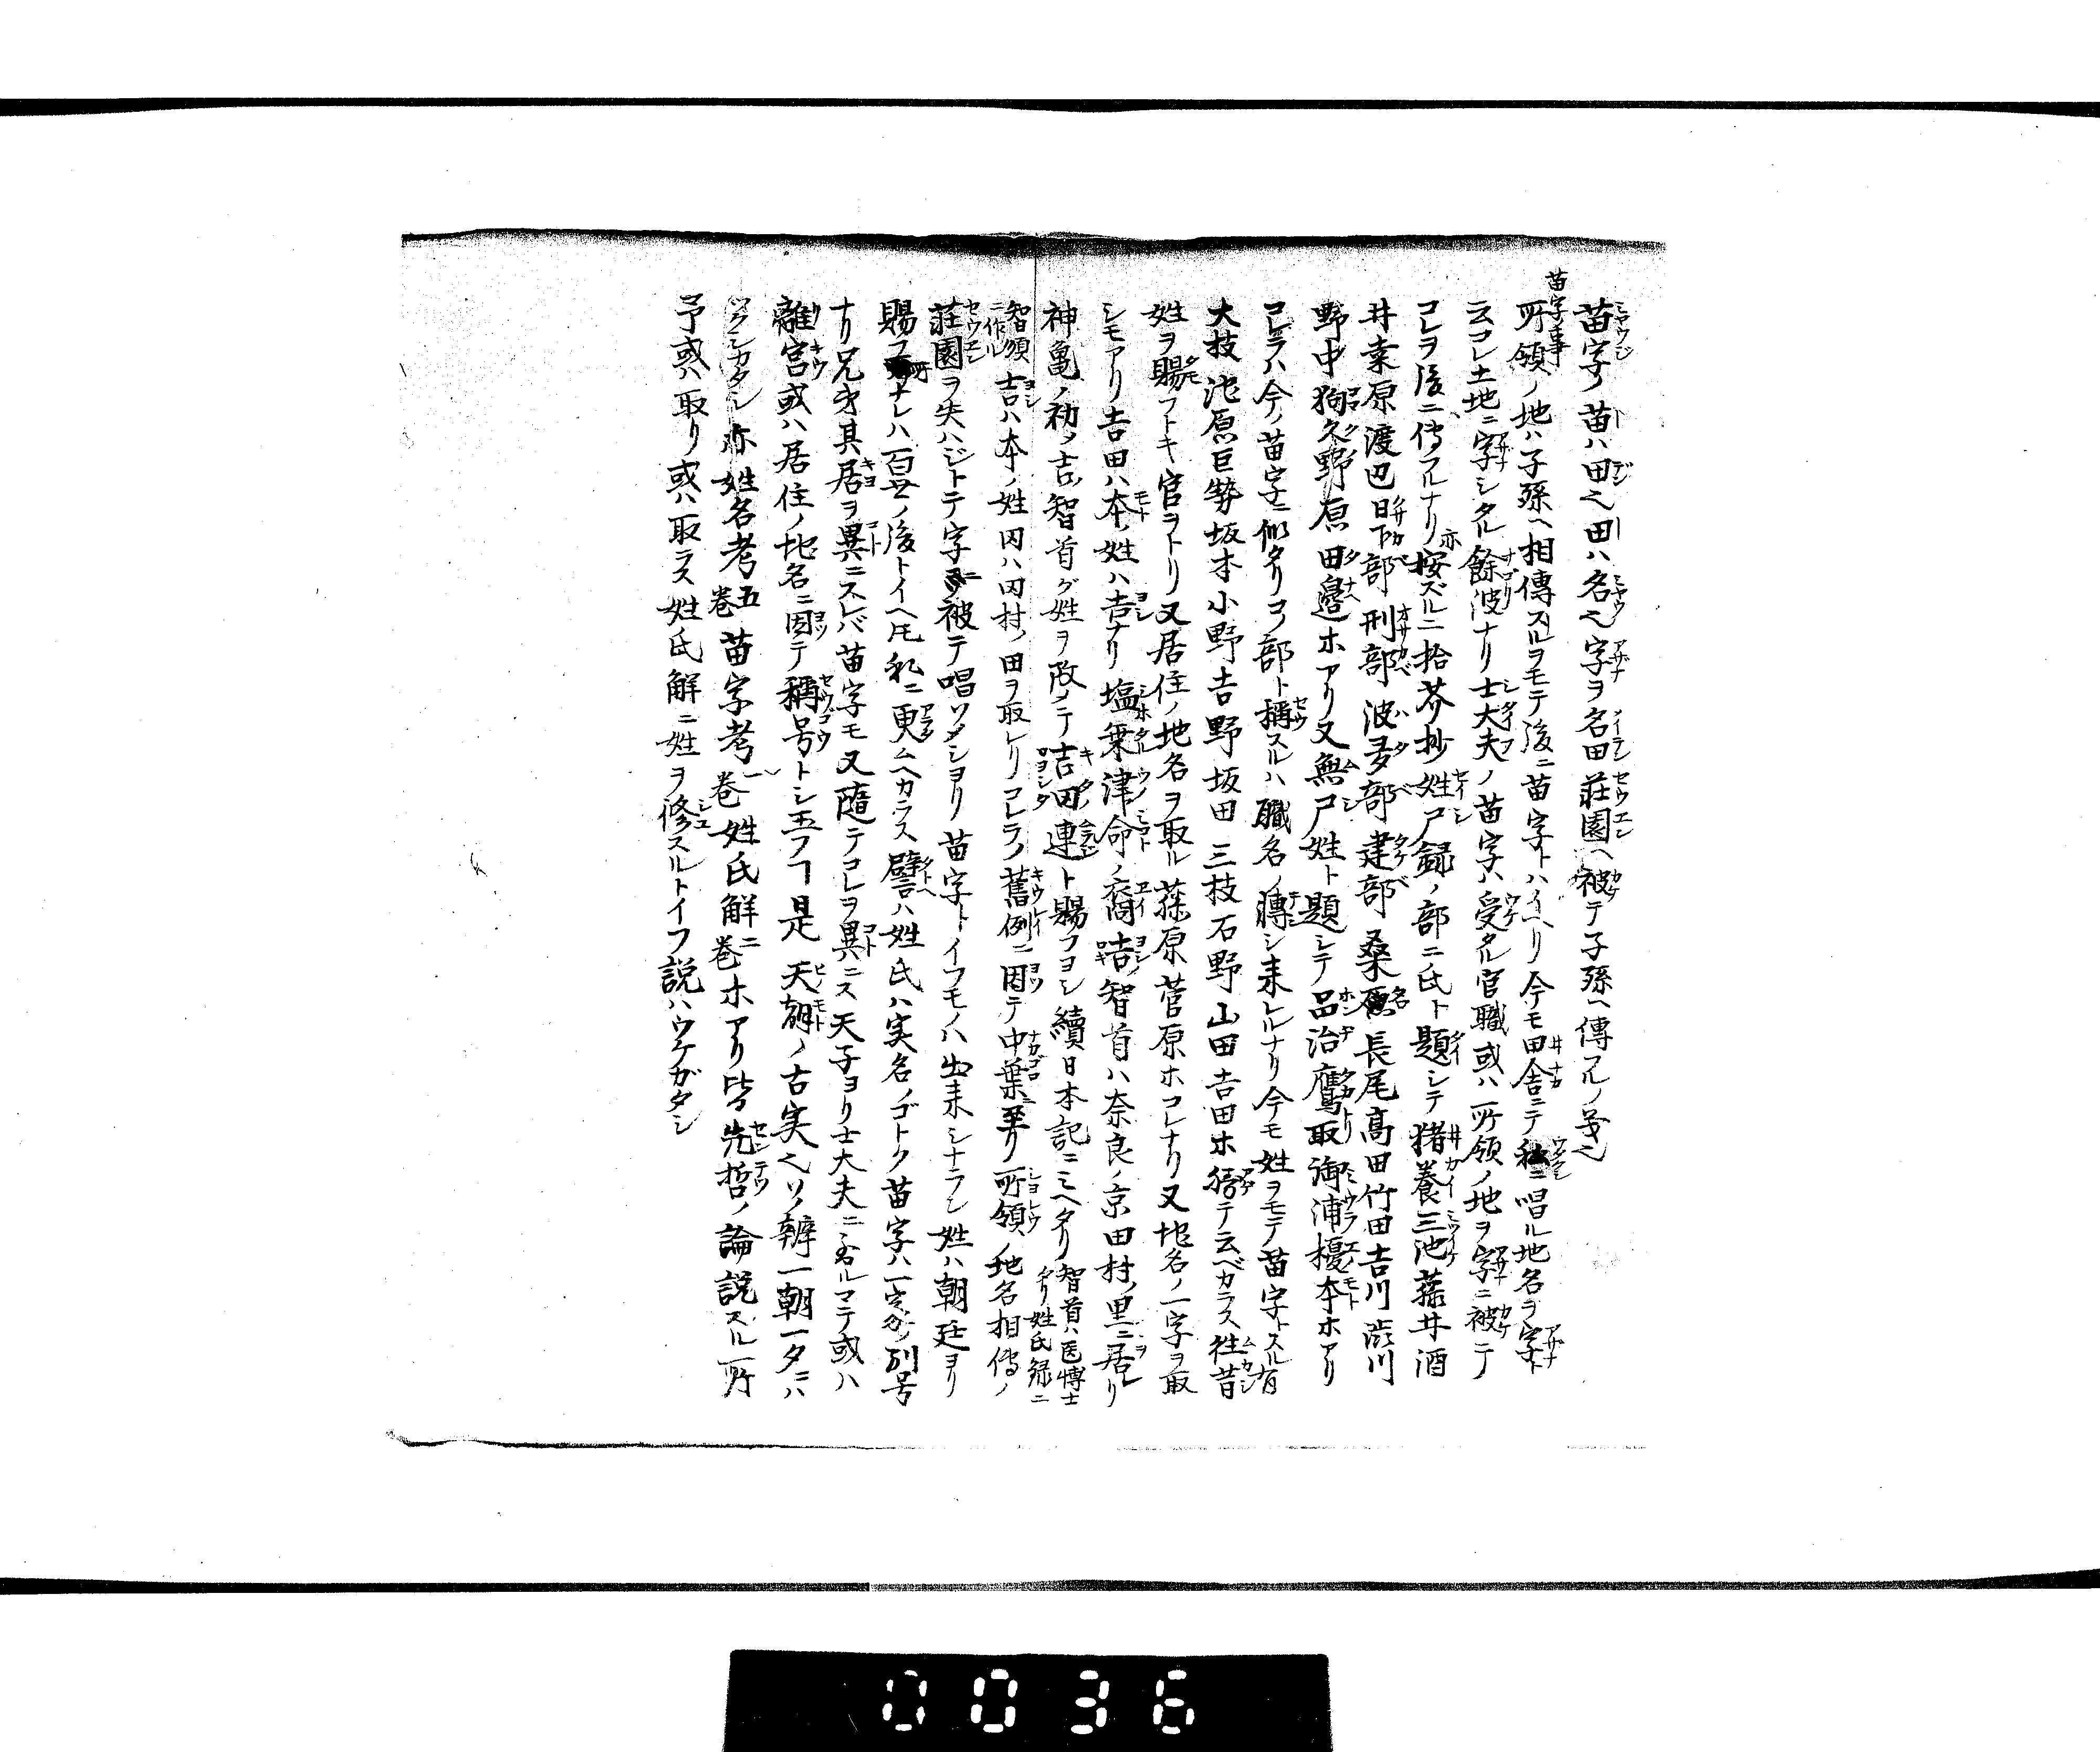 苗字ノ苗ハ田也田ハ名也字ヲ名田荘園ヘ被テ子孫ヘ傳フルノ義也
苗字ノ事
所領ノ地ハ子孫ヘ相傳スルヲモテ後ニ苗字トハイヘリ今モ田舎ニテ私ニ唱ル地名ヲ字ト
云コレ土地ニ字シタル餘波ナリ士大夫ノ苗字ハ受タル官職或ハ所領ノ地ヲ字ニ被テ
コレヲ後ニ傳フルナリ亦按ズルニ拾芥抄姓尸録ノ部ニ氏ト題シテ猪養三池藤井酒
井栗原渡辺日下部刑部波多部建部桑名長尾高田竹田吉川澁川
野中狗久野原田邉ホアリ又無尸姓ト題シテ品治鷹取御浦榎本ホアリ
コレラハ今ノ苗字ニ似タリコノ部ト稱スルハ職名ノ轉シ来レルナリ今モ姓ヲモテ苗字トスル有
大枝池原巨勢坂本小野吉野坂田三枝石野山田吉田ホ勝テ云ベカラス徃昔
姓ヲ賜フトキ官ヲトリ又居住ノ地名ヲ取ル藤原菅原ホコレナリ又地名ノ一字ヲ取
シモアリ吉田ハ本ノ姓ハ吉ナリ塩乗津命ノ裔吉ノ智首ハ奈良ノ京田村ノ里ニ居レリ
神亀ノ初メ吉ノ智首ガ姓ヲ改メテ吉田連ト賜フヨシ續日本記ニミヘタリ智首ハ医博士ナリ姓氏録ニ
智須ニ作ル吉ハ本ノ姓田ハ田村ノ田ヲ取レリコレラノ舊例ニ因テ中葉ニ至リ所領ノ地名相傳ノ
荘園ヲ失ハジトテ字ニ被テ唱ソメシヨリ苗字トイフモノハ出来シナラン姓ハ朝廷ヨリ
賜フ所ナレハ百世ノ後トイヘ𪜈私ニ更ムヘカラス譬ハ姓氏ハ実名ノゴトク苗字ハ一家ノ別号
ナリ兄弟其居ヲ異ニスレバ苗字モ又隨テコレヲ異ニス天子ヨリ士大夫ニ至ルマテ或ハ
離宮或ハ居住ノ地名ニ因テ稱号トシ玉フヿ是天朝ノ古実也ソノ辨一朝一夕ニハ
ツクシカタシ亦姓名考五巻苗字考一巻姓氏解二巻ホアリ皆先哲ノ論説スル所
予或ハ取リ或ハ取ラス姓氏解ニ姓ヲ修スルトイフ説ハウケガタシ